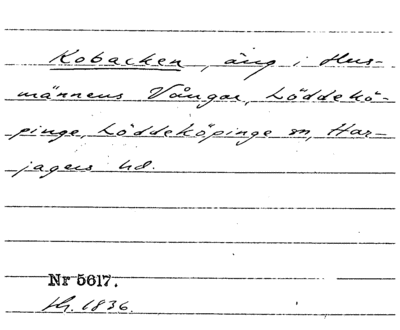 Kobacken, äng i Hus-
männens Vångar, Löddekö-
pinge, Löddeköpinge sn, Har-
jagers hd.
Nr 5617.
1836.